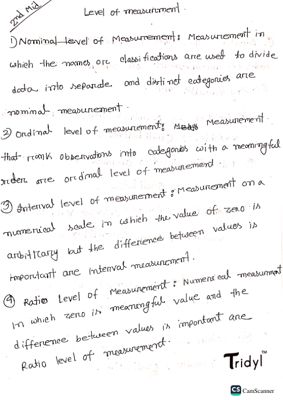 2nd Mid
Level of measurement.
1) Nominal level of Measurement: Measurement in
which the names or classifications are used to divide
data into separate and distinct categories are
nominal measurement.
2) Ordinal level of measurement: Measurement
that rank observations into categories with a meaningful
order are ordinal level of measurement.
3) Interval level of measurement: Measurement on a
numerical scale in which the value of zero is
arbitrary but the difference between values is
important are interval measurement.
4) Ratio Level of Measurement: Numerical measurement
in which zero is meaningful value and the
difference between values is important are
Ratio level of measurement.
Tridyl™
CS CamScanner